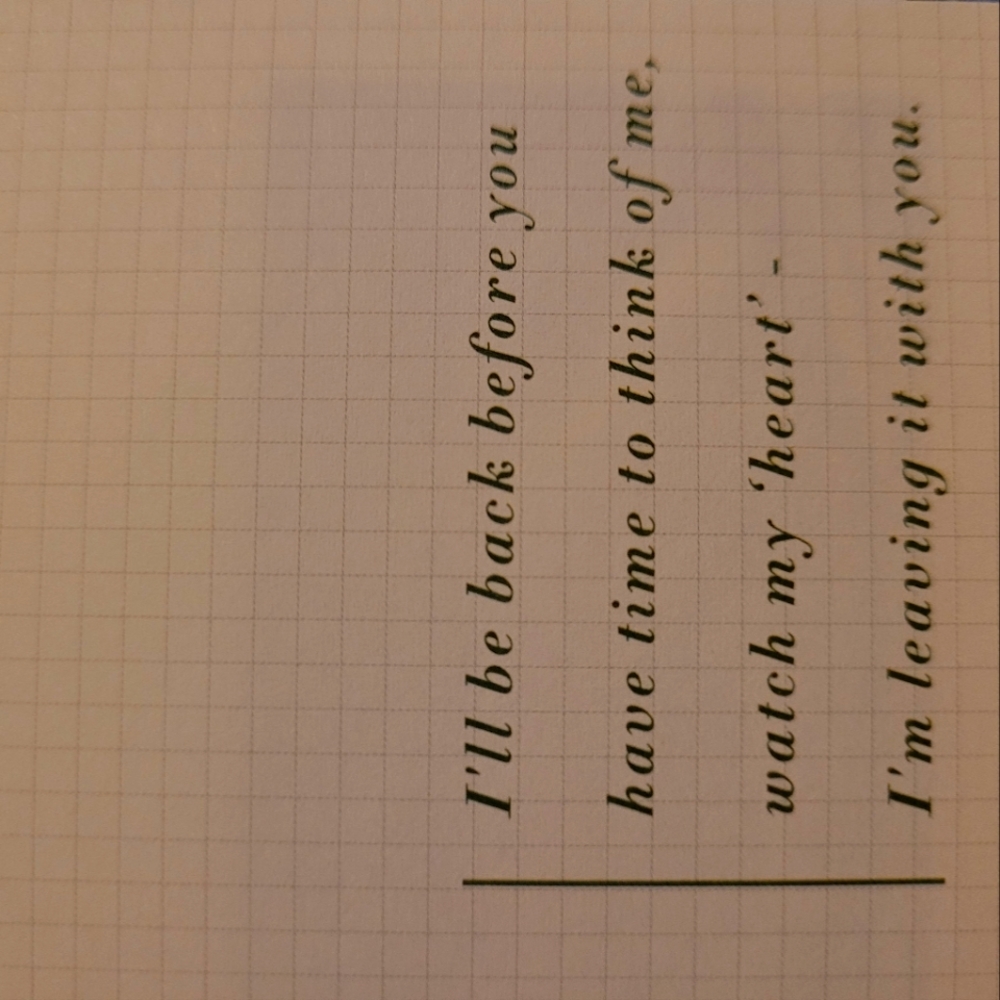 I'll be back before you
have time to think of me,
watch my ‘heart’ -
I'm leaving it with you.